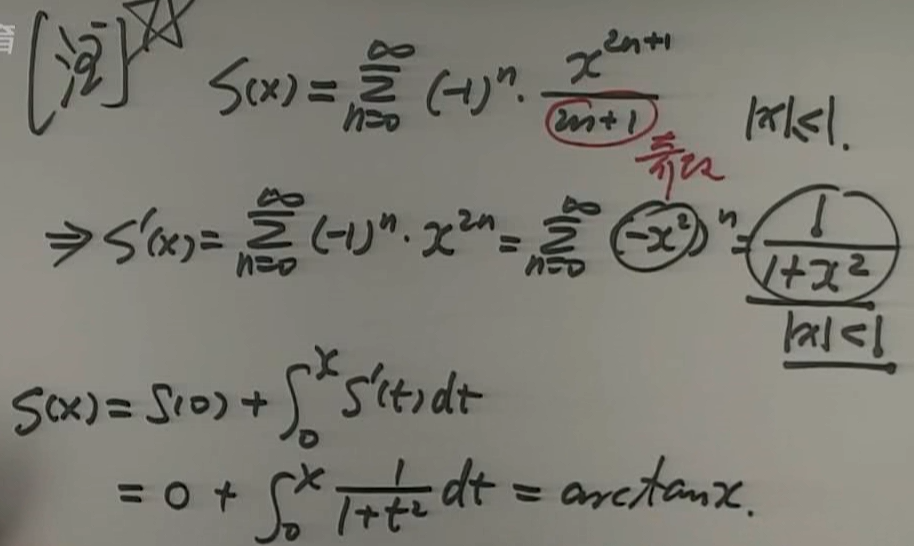 [注]☆ S(x) = ∑_{n=0}^{∞} (-1)^n · x^{2n+1}/(2n+1) |x|<1.
⇒ S'(x) = ∑_{n=0}^{∞} (-1)^n · x^{2n} = ∑_{n=0}^{∞} (-x²)^n = 1/(1+x²)
|x|<1
S(x) = S(0) + ∫_0^x S'(t) dt
= 0 + ∫_0^x 1/(1+t²) dt = arctan x.